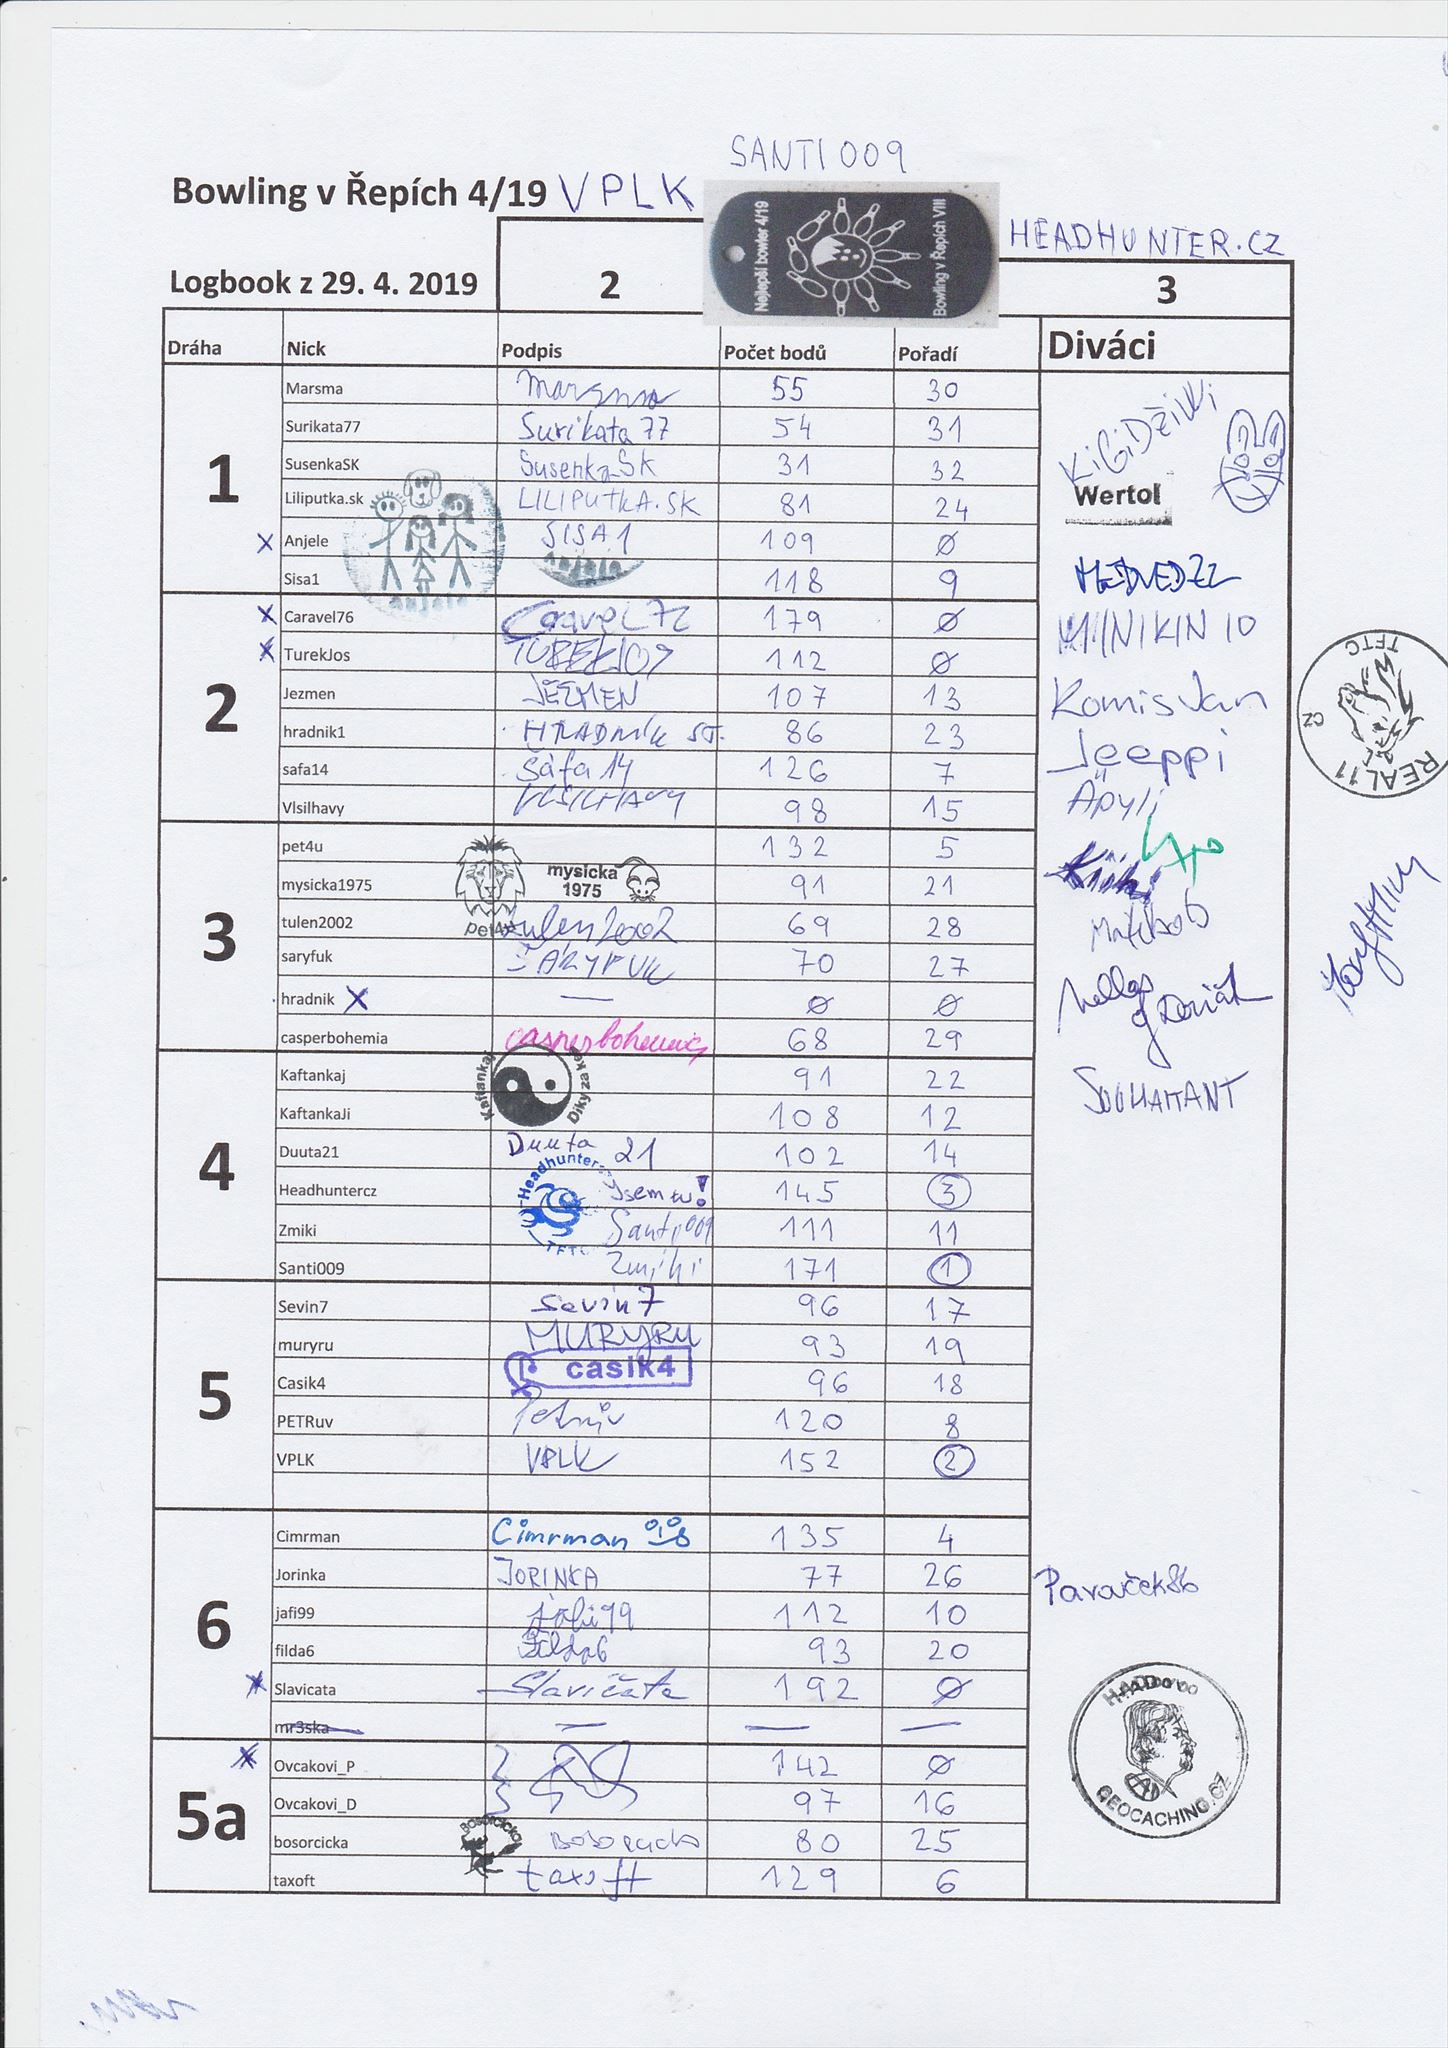 SANTI 009
Bowling v Řepích 4/19 VPLK
Nejlepší bowler 4/19
Bowling v Řepích VIII
HEADHUNTER.CZ
Logbook z 29. 4. 2019 2 3
Dráha Nick Podpis Počet bodů Pořadí Diváci
1
Marsma Marsma 55 30
Surikata77 Surikata 77 54 31
SusenkaSK SusenkaSK 31 32
Liliputka.sk LILIPUTKA.SK 81 24
x Anjele SISA1 109 Ø
anjele
Sisa1 118 9
2
x Caravel76 179 Ø
x TurekJos TUREKJOS 112 Ø
Jezmen JEČMEN 107 13
hradnik1 HRADNÍK ST. 86 23
safa14 Šáfa 14 126 7
Vlsilhavy VLSILHAVY 98 15
3
pet4u pet4u 132 5
mysicka1975 mysicka 1975 91 21
tulen2002 tulen2002 69 28
saryfuk ŠARYFUK 70 27
hradnik x — Ø Ø
casperbohemia casperbohemia 68 29
4
Kaftankaj Kaftankaj Díky za keš 91 22
KaftankaJi 108 12
Duuta21 Duuta 21 102 14
Headhuntercz Headhunter TFTC Jsem tu! 145 3
Zmiki Santi009 111 11
Santi009 Zmiki 171 1
5
Sevin7 Sevin7 96 17
muryru MURYRU 93 19
Casik4 casik4 96 18
PETRuv Petruv 120 8
VPLK VPLK 152 2
6
Cimrman Cimrman 135 4
Jorinka JORINKA 77 26
jafi99 jafi99 112 10
filda6 Filda6 93 20
x Slavicata Slavičata 192 Ø
mr3ska — — —
5a
x Ovcakovi_P 142 Ø
Ovcakovi_D 97 16
bosorcicka Bosorcicka 80 25
taxoft taxoft 129 6
KiGiDžiWi
Wertol
MEDVEDZZ
MINIKIN 10
KomisVan
Jeeppi
Äpyli
SOUHAITANT
Pavouček86
HADovo
GEOCACHING.CZ
REAL11
CZ
TFTC